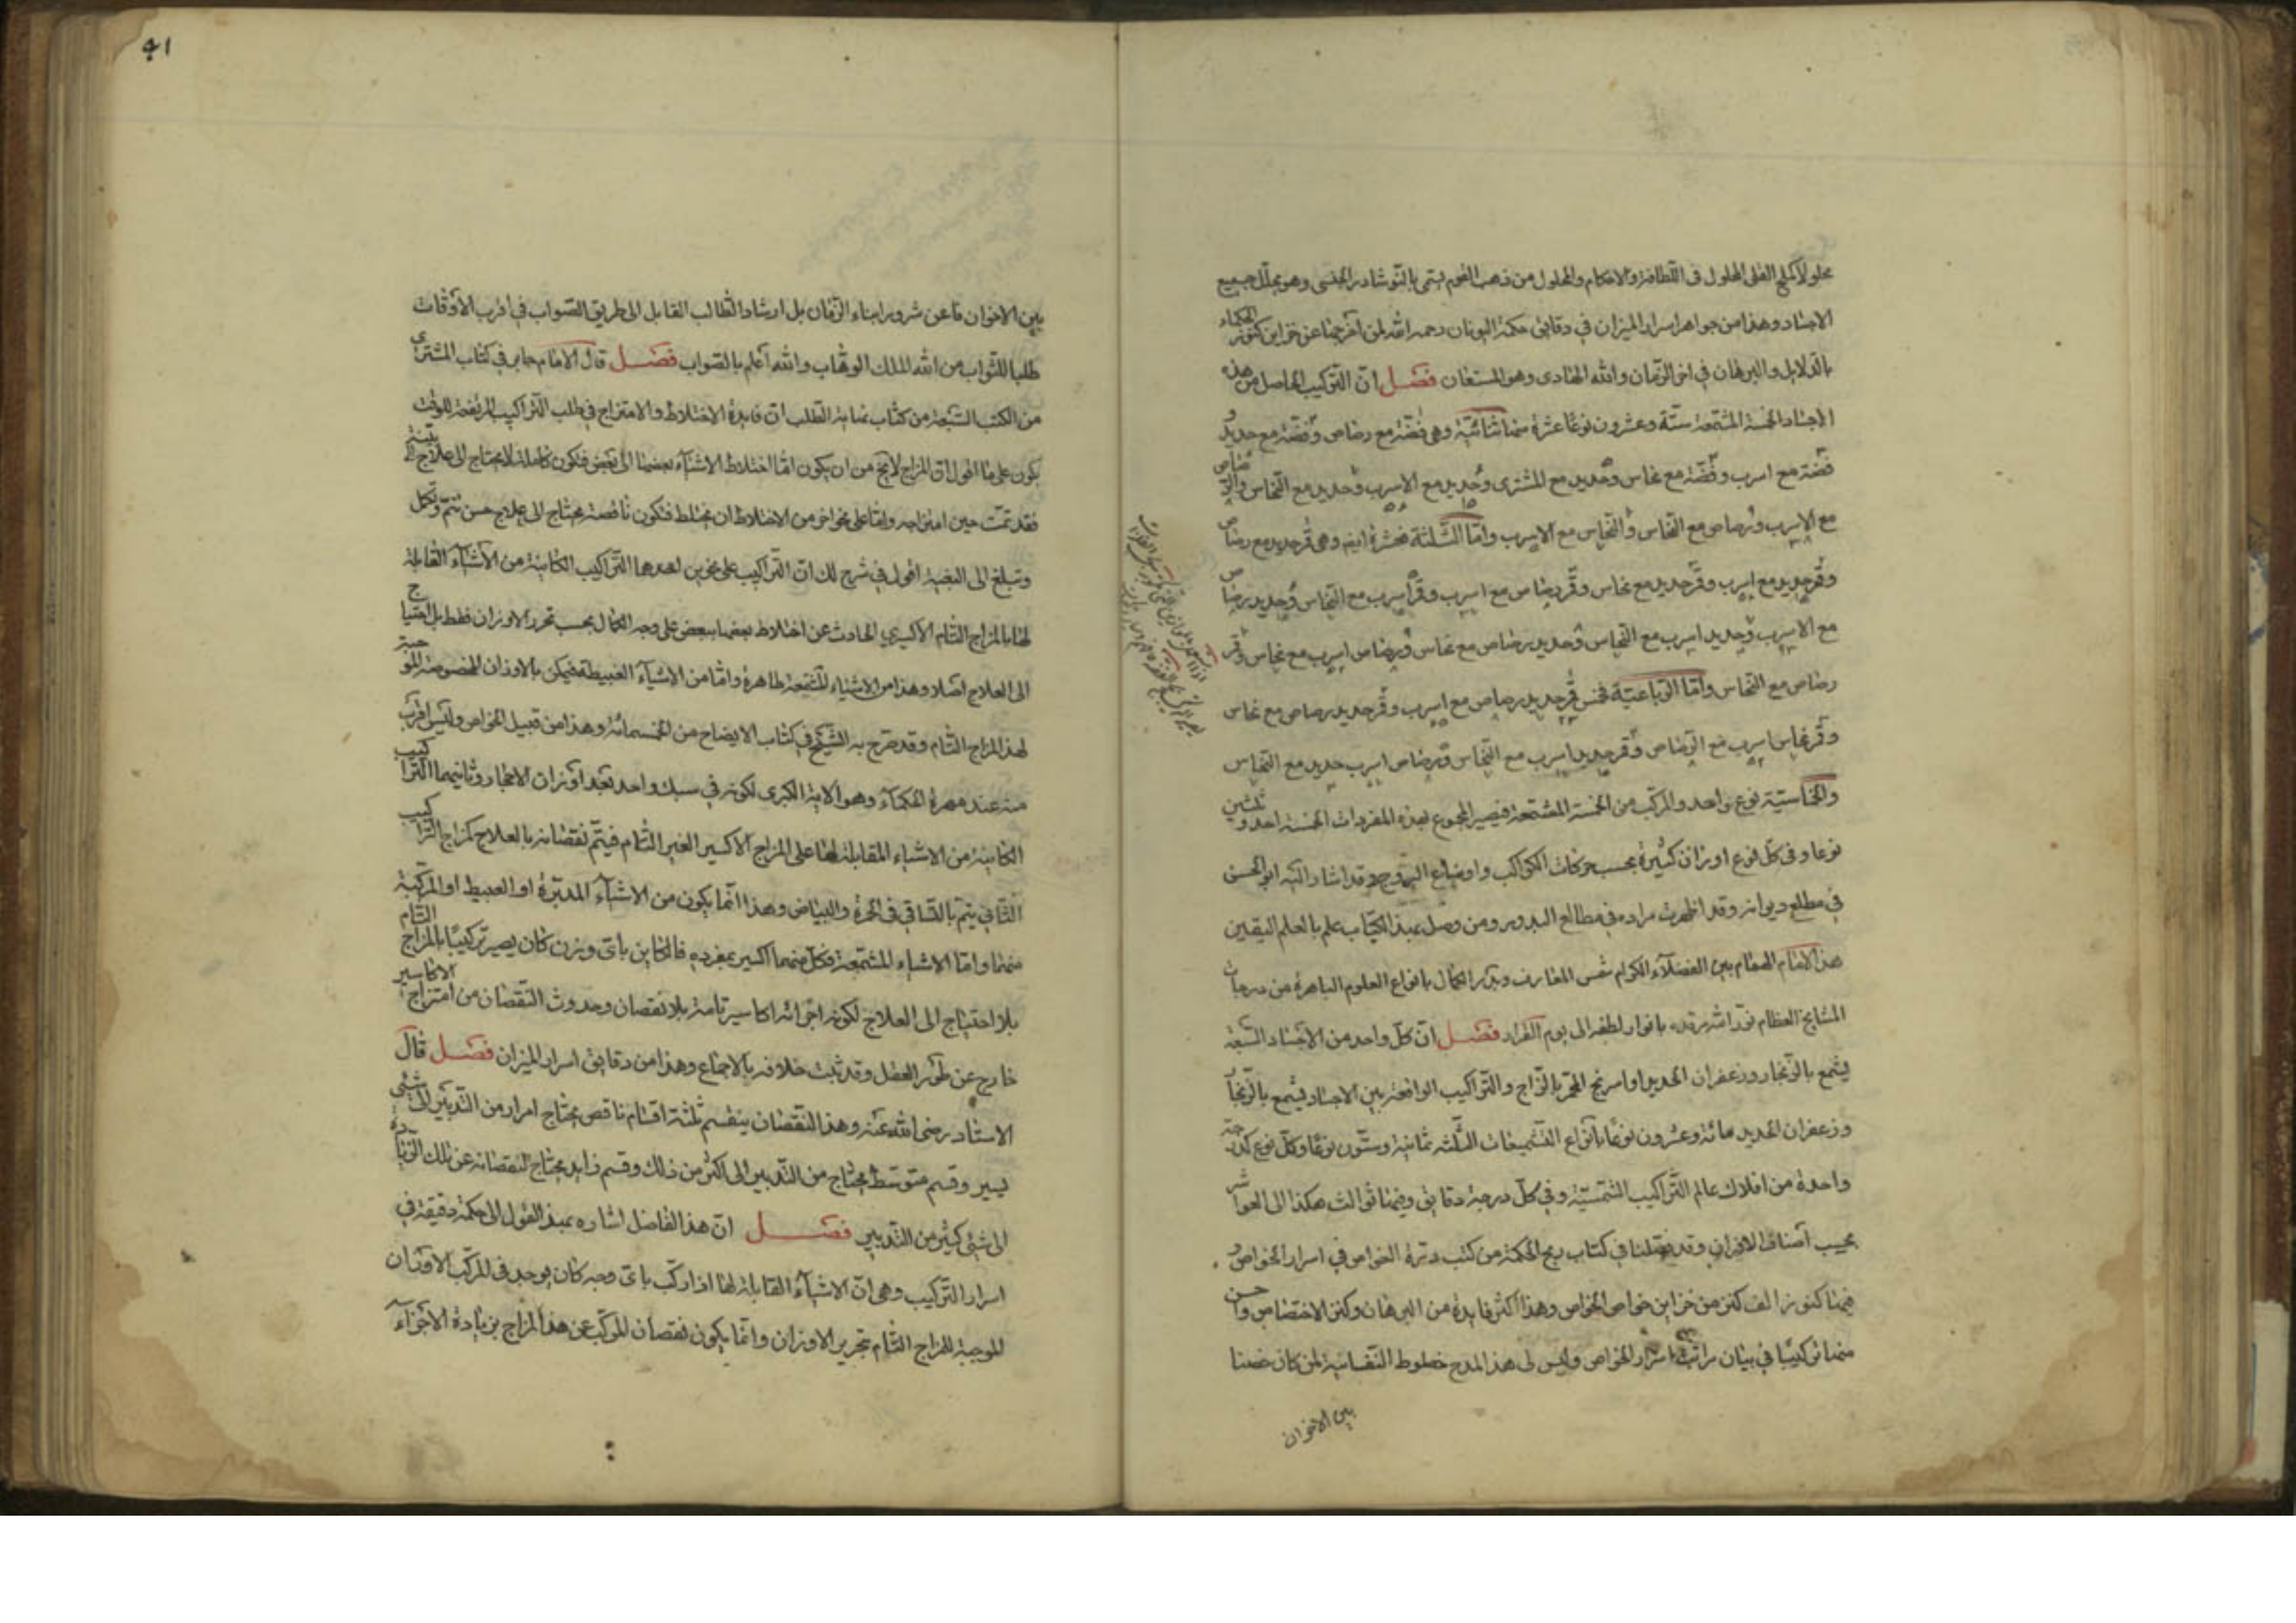 محلولا كملح القلى المحلول فى اللطافة والاحكام والمحلول من ذهب القوم يسمى بالنوشادر الجنسى وهو يحلل جميع
الاجساد وهذا من جواهر اسرار الميزان فى دقايق حكمة اليونان رحمة الله لمن اخرجها عن خزاين كنوز الحكماء
بالدلايل والبرهان فى اخر الزمان والله الهادى وهو المستعان فصل ان التركيب الحاصل من هذه
الاجساد الخمسة المشمعة ستة وعشرون نوعا عشرة منها ثنائية وهى فضة مع رصاص وفضة مع حديد و
فضة مع اسرب وفضة مع نحاس وحديد مع المشترى وحديد مع الاسرب وحديد مع النحاس والرصاص
مع الاسرب ورصاص مع النحاس والنحاس مع الاسرب واما الثلثة فعشرة ايضا وهى قمر حديد مع رصاص
وقمر حديد مع اسرب وقمر حديد مع نحاس وقمر رصاص مع اسرب وقمر اسرب مع النحاس وحديد رصاص
مع الاسرب وحديد اسرب مع النحاس وحديد رصاص مع نحاس ورصاص اسرب مع نحاس وقمر
رصاص مع النحاس واما الرباعية فخمس قمر حديد رصاص مع اسرب وقمر حديد رصاص مع نحاس
وقمر نحاس اسرب مع الرصاص وقمر حديد اسرب مع النحاس ورصاص اسرب حديد مع النحاس
والخماسية نوع واحد والمركب من الخمسة المشمعة فيصير المجموع بهذه المفردات الخمسة احد وثلثين
نوعا وفى كل نوع اوزان كثيرة بحسب حركات الكواكب واوضاع البروج وقد اشار اليه ابو الحسن
فى مطلع ديوانه وقد اظهرت مراده فى مطالع البدور ومن وصل بهذا الكتاب علم بالعلم اليقين
هذا الامام المقام بين الفضلاء الكرام شمس المعارف وبدر الكمال بانواع العلوم الباهرة من درجات
المشايخ العظام نور الله مرقده بانوار لطفه الى يوم القرار فصل ان كل واحد من الاجساد السبعة
يشمع بالزنجار وزعفران الحديد او اسرنج المحمر بالزاج والتراكيب الواقعة بين الاجساد فيشمع بالزنجار
وزعفران الحديد مائة وعشرون نوعا بانواع التشميعات الثلثة ثمانية وستون نوعا وكل نوع كدرجة
واحدة من افلاك عالم التراكيب الشمسية وفى كل درجة دقايق وفيها ثوالث هكذا الى العواشر
بحسب اصناف الاوزان وقد فصلنا فى كتاب ريح الحكمة من كتب درة الغواص فى اسرار الخواص و
فيها كنوز الف كنز من خزاين خواص الخواص وهذا اكثر فايدة من البرهان وكنز الاختصاص واحسن
منها تركيبا فى بيان مراتب اسرار الخواص وليس لى هذا المدح خطوط النفسانية لمن كان ضنينا
بين الاخوان
41
بين الاخوان فاعن شرور ابناء الزمان بل ارشاد الطالب القابل الى طريق الصواب فى اقرب الاوقات
طلبا للثواب من الله الملك الوهاب والله اعلم بالصواب فصل قال الامام جابر فى كتاب المشترى
من الكتب السبعة من كتاب نهاية الطلب ان فايدة الاختلاط والامتزاج فى طلب التراكيب المرتفعة للوقت
يكون على ما اقول ان المزاج لا يخ من ان يكون اما اختلاط الاشياء بعضها الى بعض فتكون كاملة لا يحتاج الى علاج
فقد تمت حين امتزاجه واما على نحو اخر من الاختلاط ان يختلط فتكون ناقصة يحتاج الى علاج حسن تتم وتكمل
وتبلغ الى البغية اقول فى شرح لك ان التراكيب على نحوين احدهما التراكيب الكاينة من الاشياء القابلة
لها بالمزاج التام الاكسيرى الحادث عن اختلاط بعضها ببعض على وجه الكمال بحسب تحرر الاوزان فقط بل احتياج
الى العلاج اصلا وهذا من الاشياء المشمعة ظاهرة واما من الاشياء الغبيطة فيمكن بالاوزان المخصوصة الموجبة
لهذا المزاج التام وقد صرح به الشيخ فى كتاب الايضاح من الخمسمائة وهذا من قبيل الخواص وليس اقرب
منه عند مهرة الحكماء وهو الاية الكبرى لكونه فى سبك واحد بعد اوزان الاحجار وثانيهما التراكيب
الكاينة من الاشياء المقابلة لها على المزاج الاكسير الغير التام فيتم نقصانه بالعلاج كمزاج التراكيب
الثانى يتم بالساقى فى الحمرة والبياض وهذا انما يكون من الاشياء المدبرة او العبيط او المركبة
منهما واما الاشياء المشمعة فكل منهما اكسير بمفرده فالكاين باى وزن كان يصير تركيبا بالمزاج التام
بلا احتياج الى العلاج لكونه اجزائه اكاسير تامة بلا نقصان وحدوث النقصان من امتزاج الاكاسير
خارج عن طور العقل وقد ثبت خلافه بالاجماع وهذا من دقايق اسرار الميزان فصل قال
الاستاد رضى الله عنه وهذا النقصان ينقسم ثلثة اقسام ناقص يحتاج امراره من التدبير الى شئ
يسير وقسم متوسط يحتاج من التدبير الى اكثر من ذلك وقسم زايد يحتاج لنقصانه عن تلك الزيادة
الى شئ كثير من التدبير فصل ان هذا الفاضل اشاره بهذا القول الى حكمة دقيقة فى
اسرار التركيب وهى ان الاشياء القابلة لها اذا ركب باى وجه كان يوجد فى المركب الاوزان
الموجبة للمزاج التام بتحرير الاوزان وانما يكون نقصان المركب عن هذا المزاج بزيادة الاجزاء